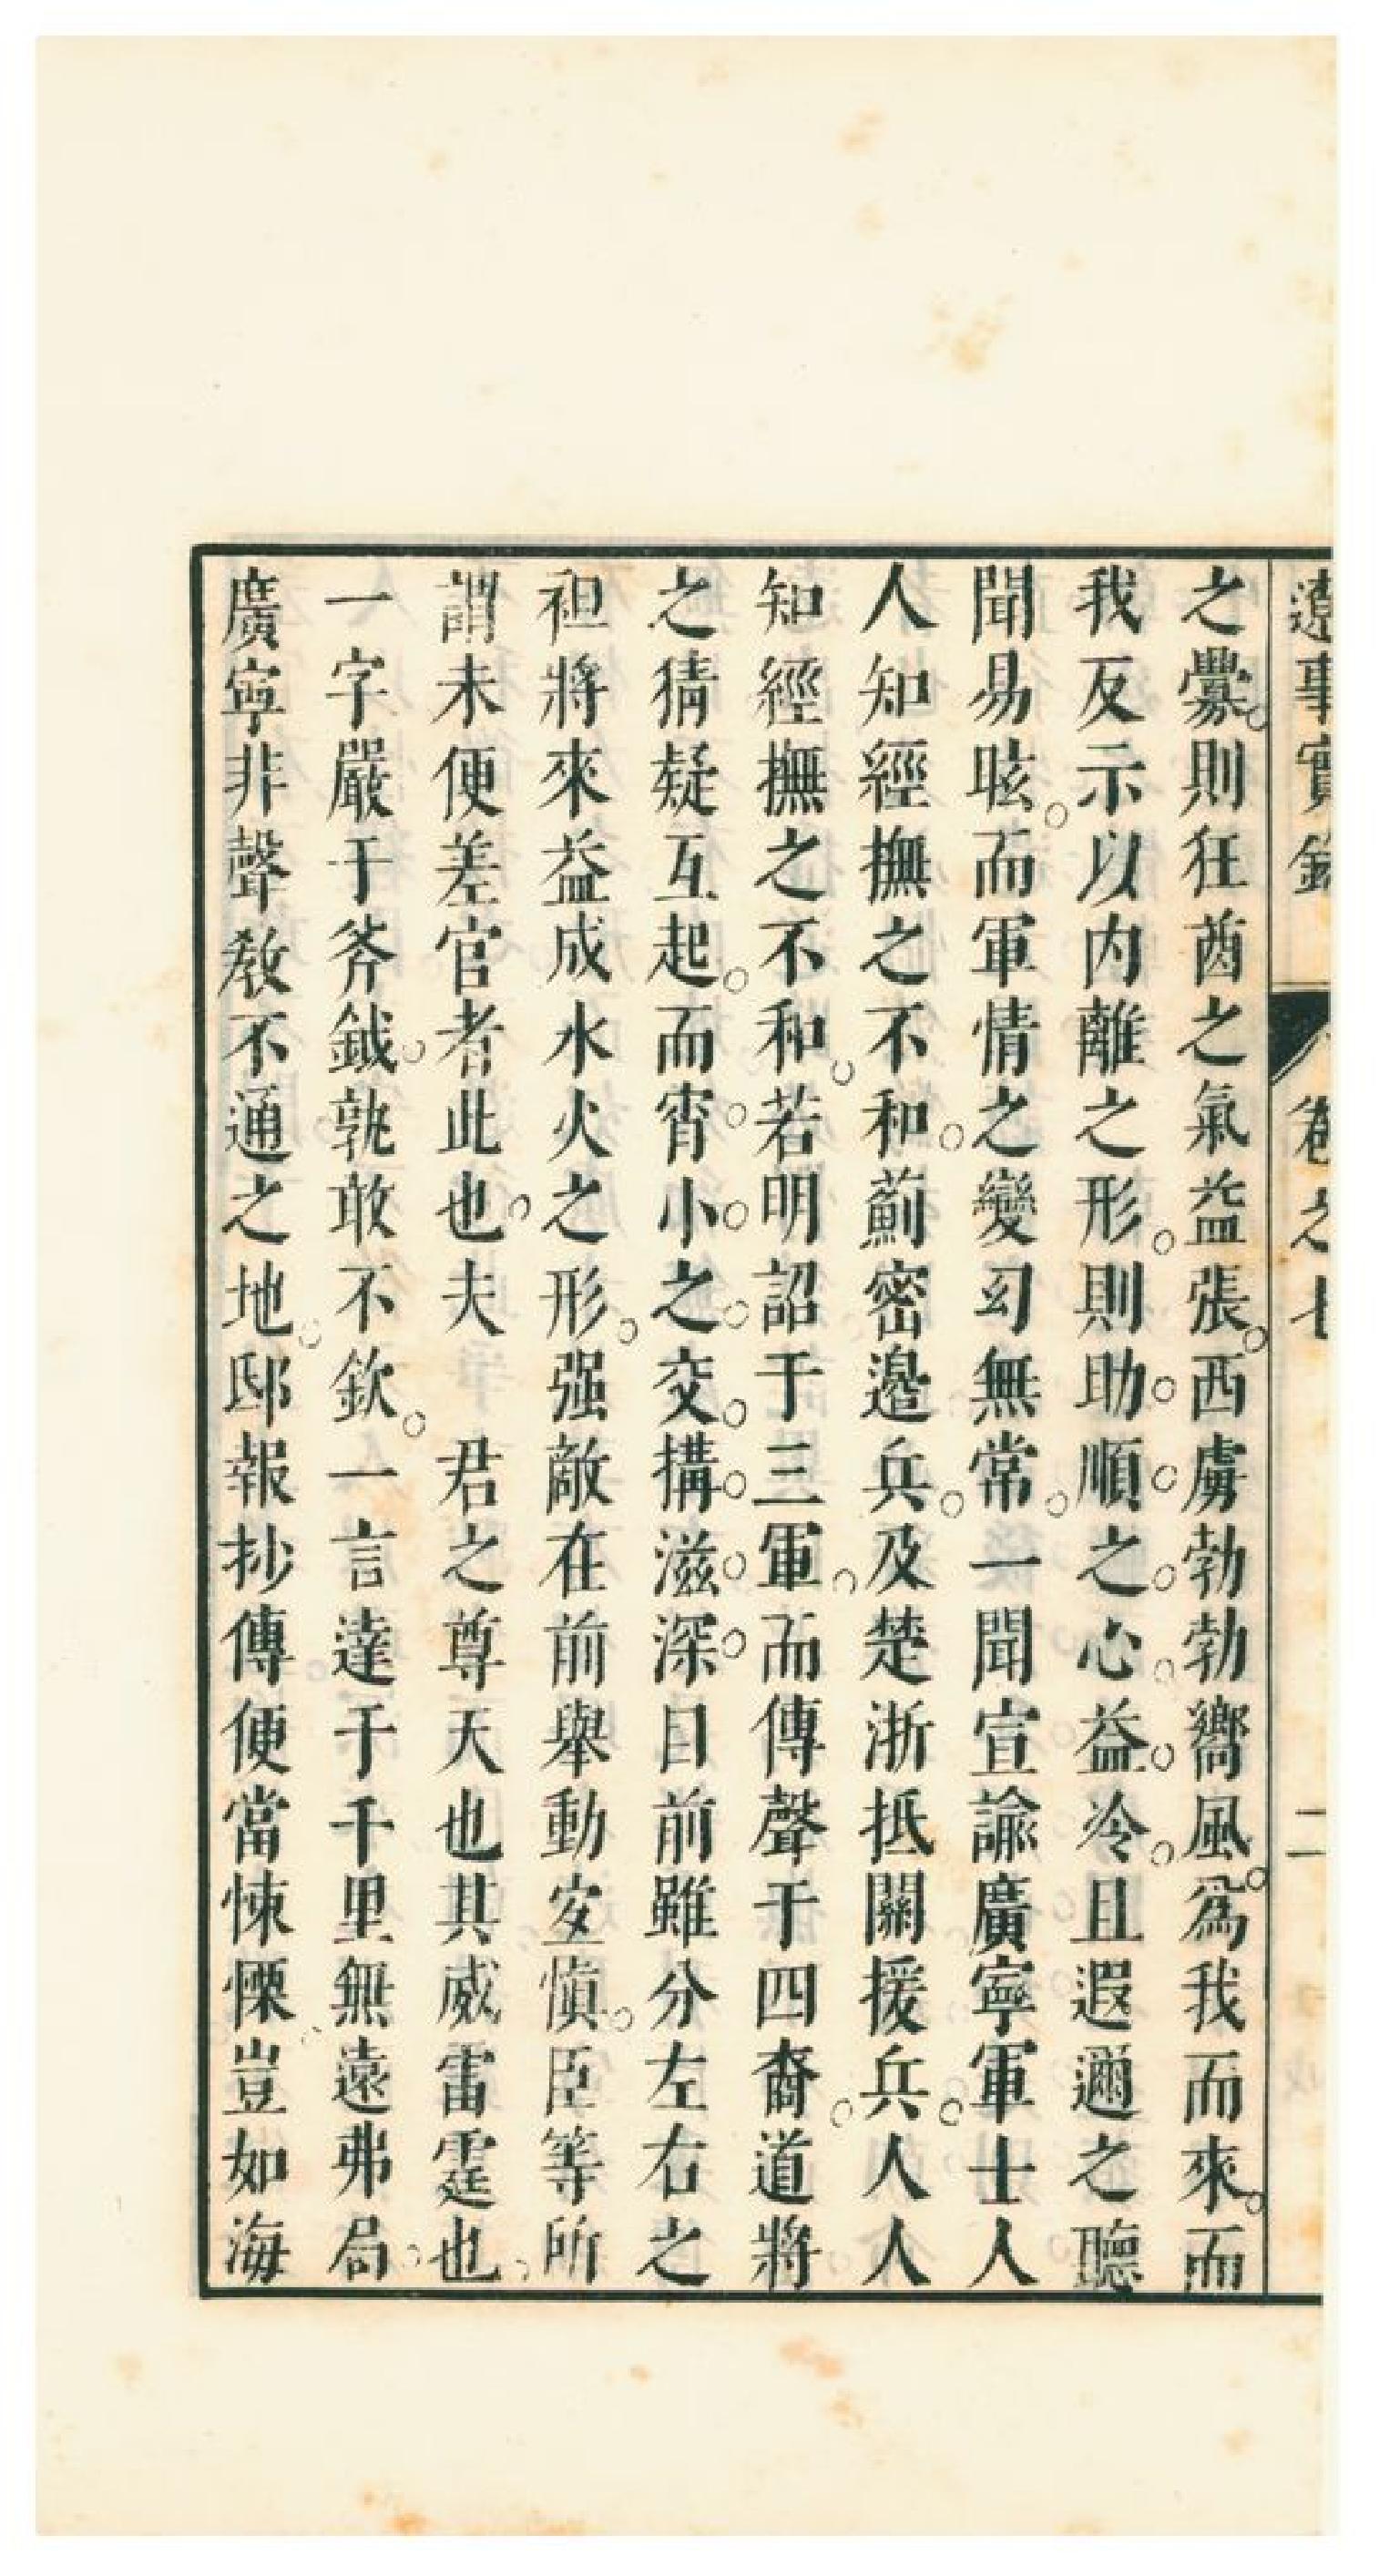 遼事實錄 卷之七 二
之釁。則狂酋之氣益張。西虜勃勃嚮風。為我而來。而
我反示以内離之形。則助順之心益冷。且遐邇之聽
聞易眩。而軍情之變幻無常。一聞宣諭廣寧軍士人
人知經撫之不和。薊密邉兵。及楚浙抵關援兵。人人
知經撫之不和。若明詔于三軍。而傳聲于四裔。道將
之猜疑互起。而宵小之交搆滋深。目前雖分左右之
袒將來益成水火之形。强敵在前舉動安愼。臣等所
謂未便差官者此也。夫 君之尊天也其威雷霆也。
一字嚴于斧鉞。孰敢不欽。一言達于千里無遠弗局。
廣寧非聲教不通之地。邸報抄傳便當悚慄。豈如海